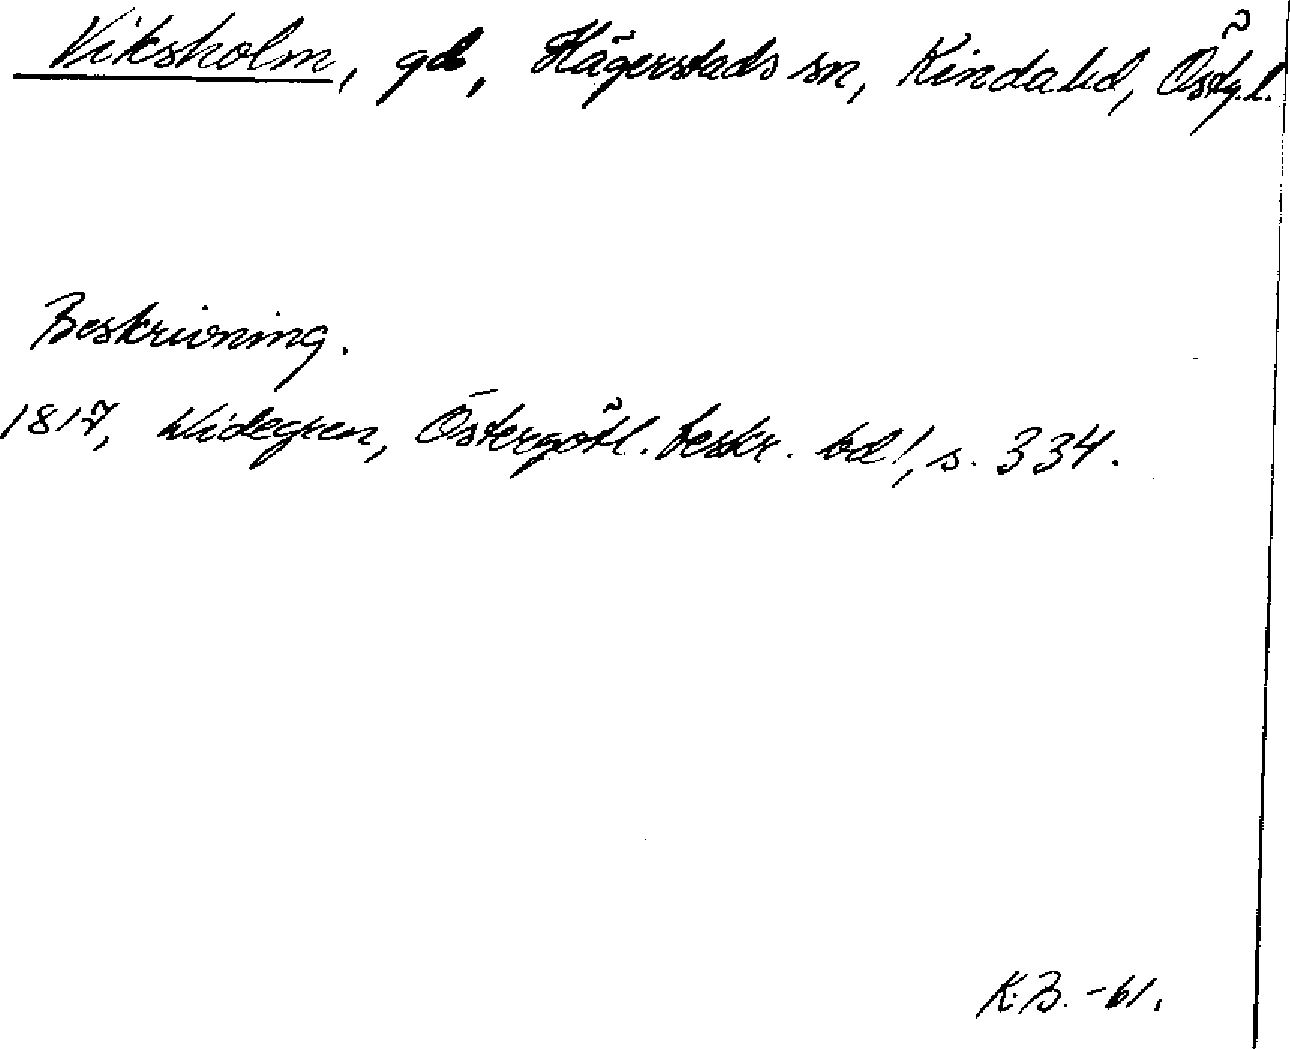 Viksholm, gd, Hägerstads sn, Kinda hd, Östg. l.
Beskrivning.
1817, Widegren, Östergötl. beskr. bd 1, s. 334.
K.B. -61.